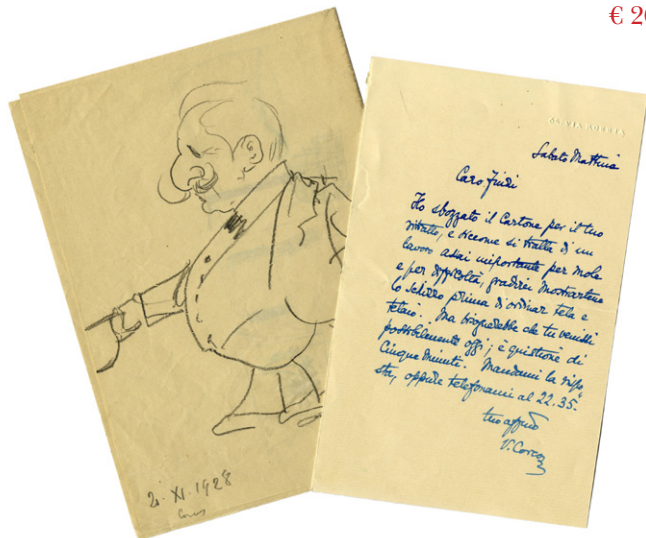 € 20
2. XI. 1928
Sabato Mattina
Caro Jindi
Ho sbozzato il Cartone per il tuo
ritratto, e siccome si tratta di un
lavoro assai importante per mole
e per difficoltà, gradirei mostrartene
lo schizzo prima d'ordinar tela e
telaio. Ma bisognerebbe che tu venissi
possibilmente oggi; è quistione di
Cinque Minuti. Mandami la rispo
sta, oppure telefonami al 22.35.
tuo affmo
V. Corcos